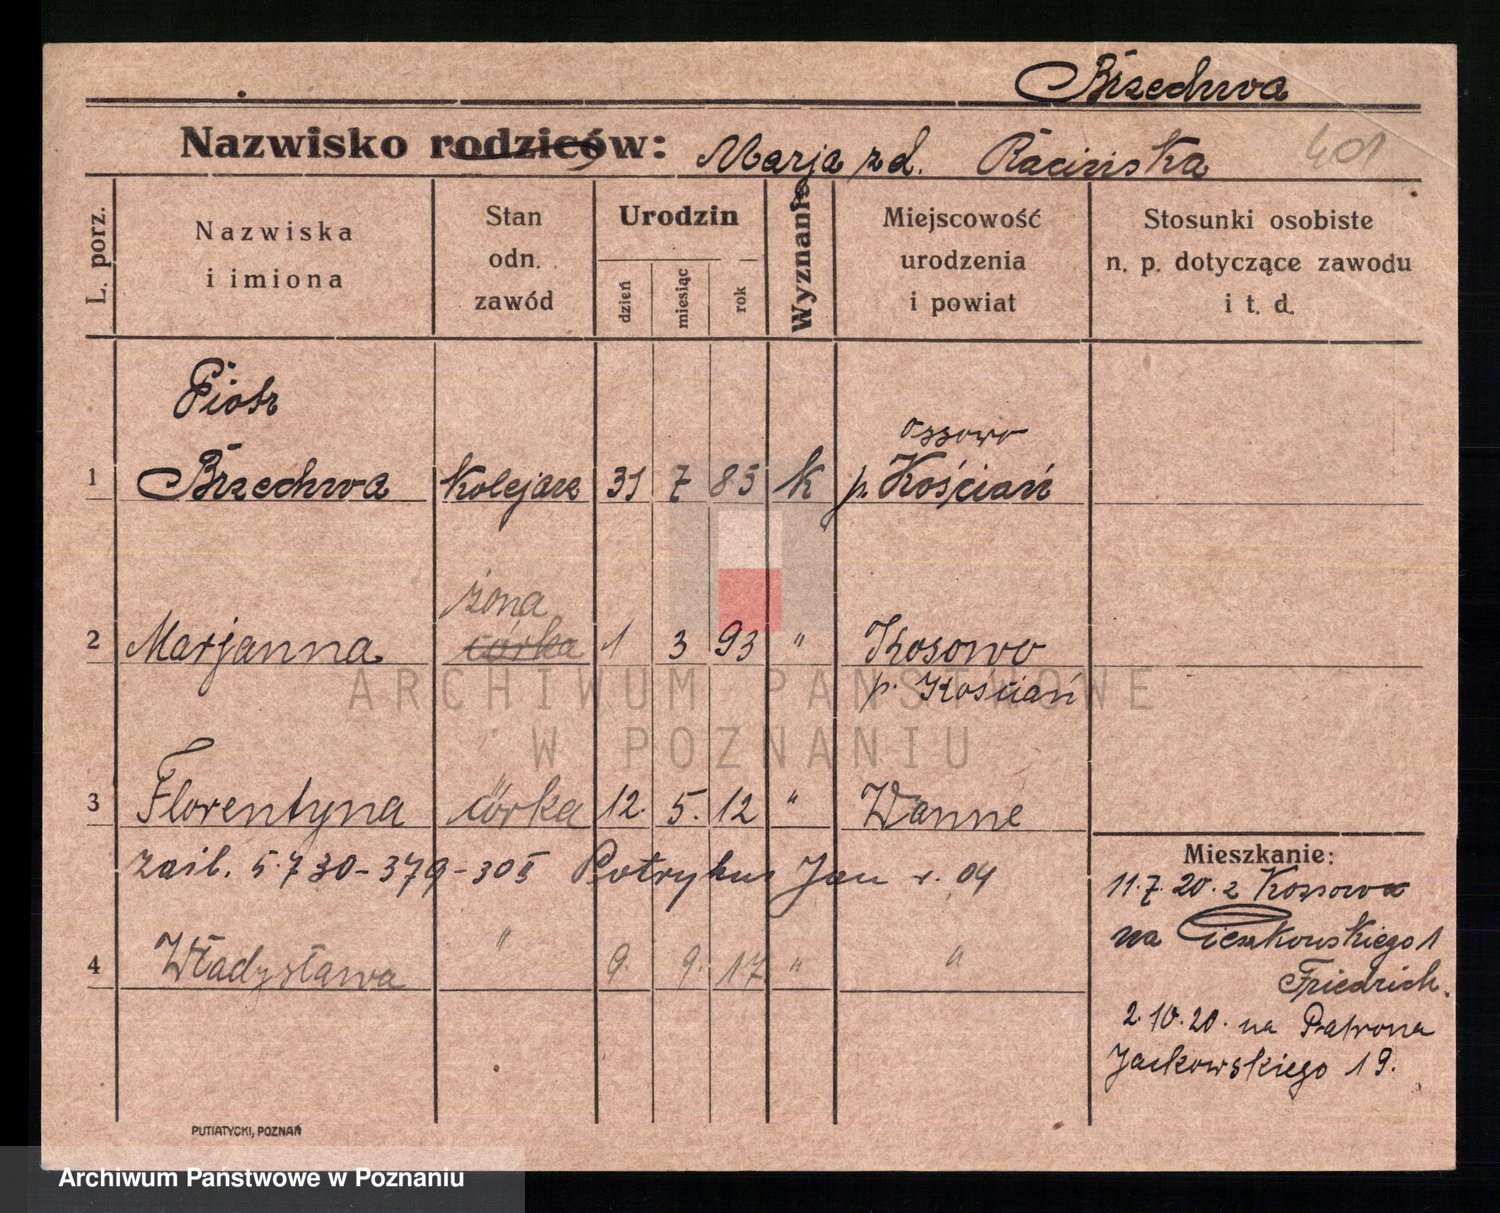 Brzechwa
Nazwisko rodziców: Marja zd. Racińska 401
L. porz.
Nazwiska
i imiona
Stan
odn.
zawód
Urodzin
dzień
miesiąc
rok
Wyznanie
Miejscowość
urodzenia
i powiat
Stosunki osobiste
n. p. dotyczące zawodu
i t. d.
Piotr
Ossowo
1 Brzechwa kolejarz 31 7 85 k p. Kościań
żona
2 Marjanna córka 1 3 93 " Kosowo
p. Kościań
3 Florentyna córka 12. 5. 12 " Wanne
zaśl. 5.7 30-379-30 Potrykus Jan r. 04
4 Władysława " 9. 9. 17 " "
Mieszkanie:
11.7.20. z Kossowa
na Cieszkowskiego 1
Friedrich.
2.10.20. na Patrona
Jackowskiego 19.
PUTIATYCKI, POZNAŃ
ARCHIWUM PAŃSTWOWE
W POZNANIU
Archiwum Państwowe w Poznaniu